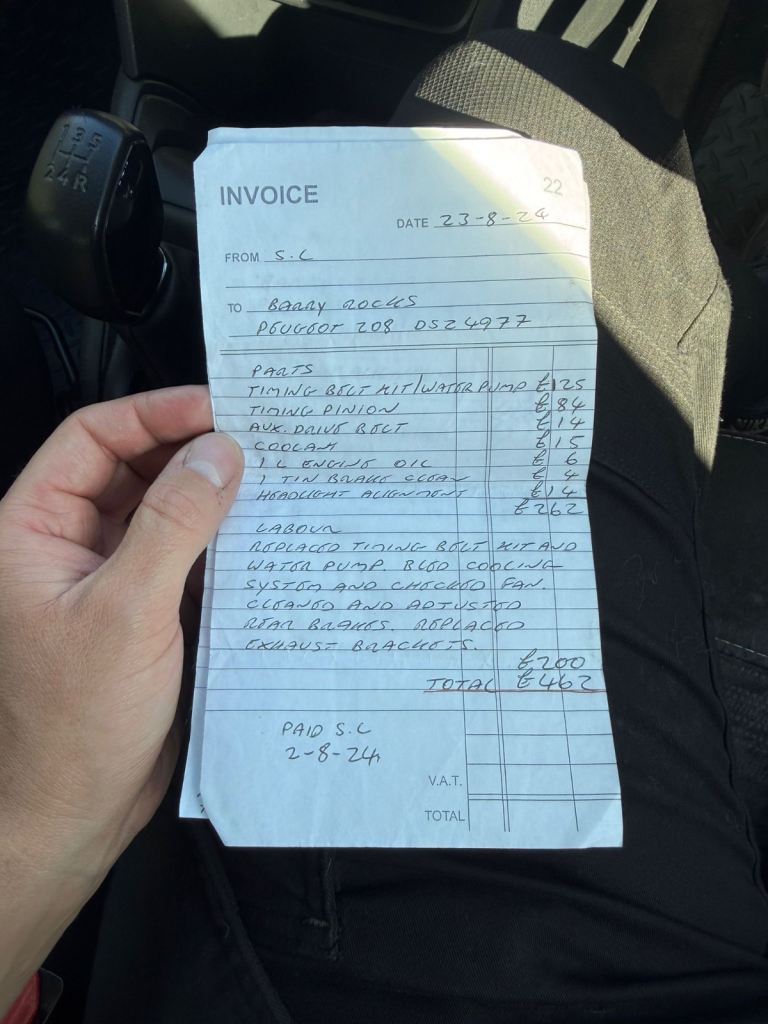 1 3 5
2 4 R
INVOICE
22
DATE 23-8-24
FROM S.C
TO BARRY ROCKS
PEUGEOT 208 DSZ4977
PARTS
TIMING BELT KIT/WATER PUMP £125
TIMING PINION £84
AUX. DRIVE BELT £14
COOLANT £15
1 L ENGINE OIL £6
1 TIN BRAKE CLEAN £4
HEADLIGHT ALIGNMENT £14
£262
LABOUR
REPLACED TIMING BELT KIT AND
WATER PUMP. BLED COOLING
SYSTEM AND CHECKED FAN.
CLEANED AND ADJUSTED
REAR BRAKES. REPLACED
EXHAUST BRACKETS.
£200
TOTAL £462
PAID S.C
2-8-24
V.A.T.
TOTAL